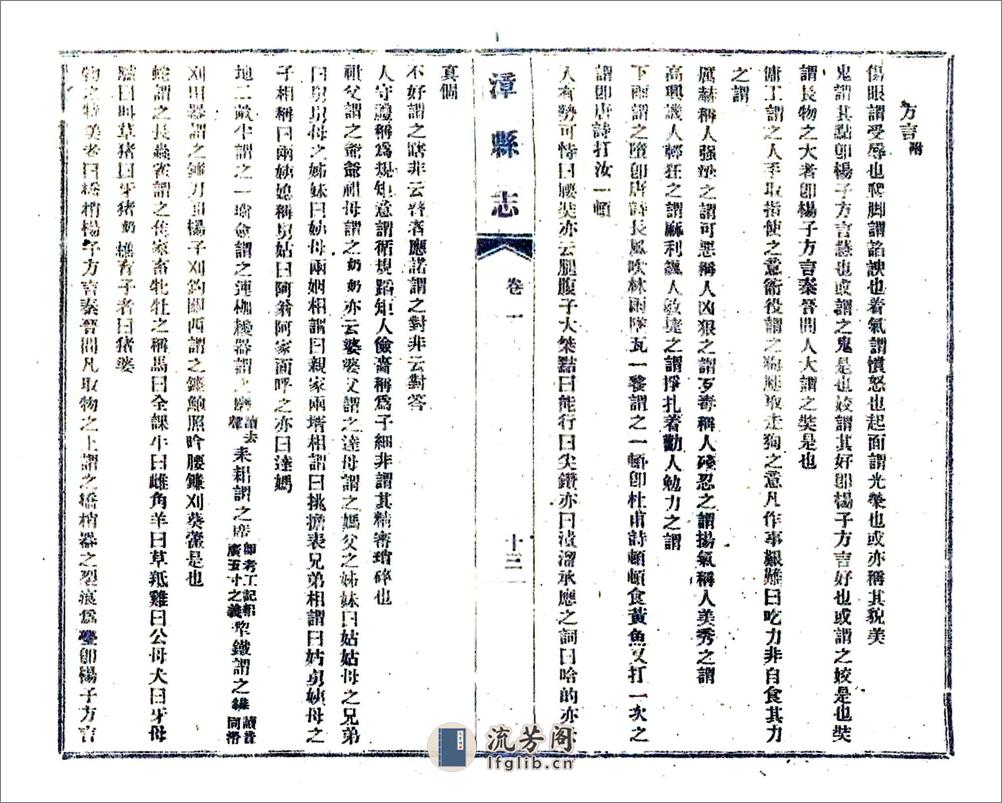 方言附
傷眼謂受辱也爬脚謂諂諛也着氣謂憤怒也起面謂光榮也或亦稱其貌美
鬼謂其黠卽楊子方言慧也或謂之鬼是也姣謂其好卽楊子方言好也或謂之姣是也奘
謂長物之大者卽楊子方言秦晉間人大謂之奘是也
傭工謂之人手取指使之意衙役謂之狗腿取走狗之意凡作事艱難曰吃力非自食其力
之謂
厲赫稱人强梁之謂可惡稱人凶狠之謂歹毒稱人殘忍之謂揚氣稱人美秀之謂
高興譏人輕狂之謂麻利諷人敏捷之謂掙扎著勸人勉力之謂
下雨謂之墮卽唐詩長風吹林雨墮瓦一餐謂之一頓卽杜甫詩頓頓食黃魚又打一次之
謂卽唐詩打汝一頓
人有勢可恃曰腰奘亦云腿腹子大桀黠曰能行曰尖鑽亦曰溜承應之詞曰哈的亦
漳縣志
卷一
十三
真個
不好謂之瞎非云瞽者應諾謂之對非云對答
人守禮稱爲規矩意謂循規蹈矩人儉嗇稱爲子細非謂其精密瑣碎也
祖父謂之爺爺祖母謂之奶奶亦云婆婆父謂之達母謂之媽父之姊妹曰姑姑母之兄弟
曰舅舅母之姊妹曰姨母兩姻相謂曰親家兩壻相謂曰挑擔表兄弟相謂曰姑舅姨母之
子相稱曰兩姨媳稱舅姑曰阿翁阿家面呼之亦曰達媽
地二畝半謂之一墒僉謂之連枷機器謂之磨讀去聲耒耜謂之卽考工記耜廣五寸之義犂鐵謂之鏵讀音同滑
刈田器謂之鐮刀卽楊子刈鈎關西謂之鐮鮑照吟腰鐮刈葵藿是也
蛇謂之長蟲雀謂之隹家畜牝牡之稱馬曰全課牛曰雌角羊曰草羝雞曰公母犬曰牙母
猪曰草猪曰牙猪奶雄育子者曰猪婆
物之特美者曰橋梢楊子方言秦晉間凡取物之上謂之橋梢器之裂痕爲璺卽楊子方言
流芳阁
lfglib.cn